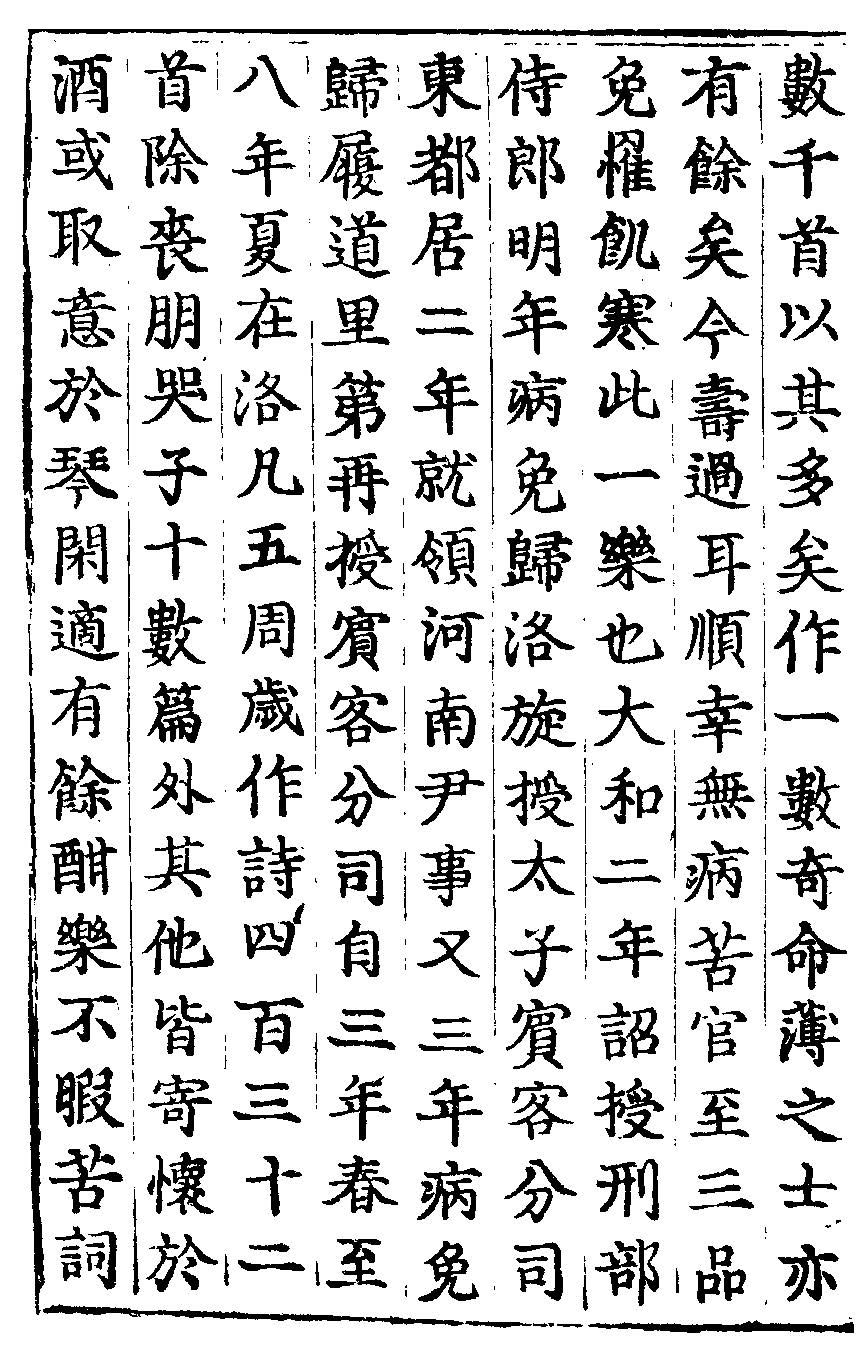 數千首以其多矣作一數奇命薄之士亦
有餘矣今壽過耳順幸無病苦官至三品
免罹飢寒此一樂也大和二年詔授刑部
侍郎明年病免歸洛旋授太子賓客分司
東都居二年就領河南尹事又三年病免
歸履道里第再授賓客分司自三年春至
八年夏在洛凡五周歲作詩四百三十二
首除喪朋哭子十數篇外其他皆寄懷於
酒或取意於琴閑適有餘酣樂不暇苦詞